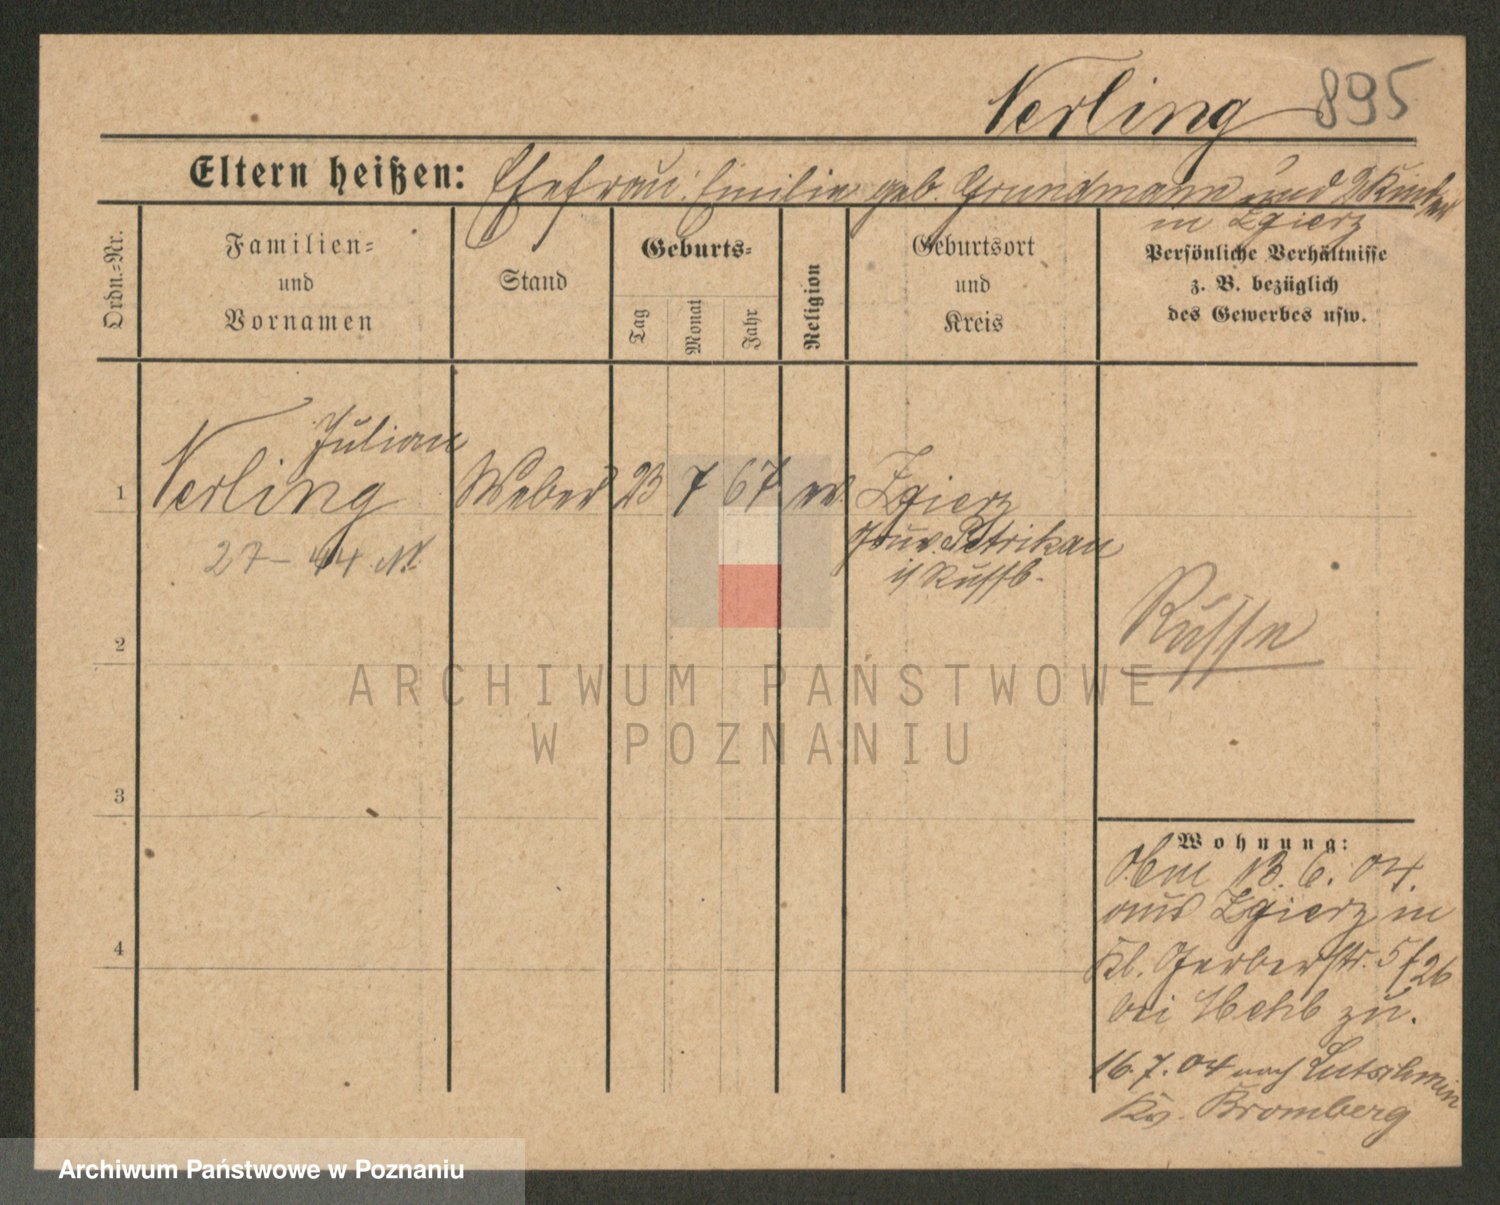 Nerling 895
Eltern heißen: Ehefrau: Emilie geb. Grundmann und 2 Kinder
in Zgierz
Ordn.-Nr.
Familien-
und
Vornamen
Stand
Geburts-
Tag
Monat
Jahr
Religion
Geburtsort
und
Kreis
Persönliche Verhältnisse
z. B. bezüglich
des Gewerbes usw.
Julian
1 Nerling Weber 23 7 67 ev. Zgierz
Gouv. Petrikau
i/ Russl.
27 – 44 M.
Russe
2
3
4
Wohnung:
13. 6. 04.
aus Zgierz in
Kl. Gerberstr. 5
bei zu.
16. 7. 04 nach Lutschmin
Kr. Bromberg
ARCHIWUM PAŃSTWOWE
W POZNANIU
Archiwum Państwowe w Poznaniu